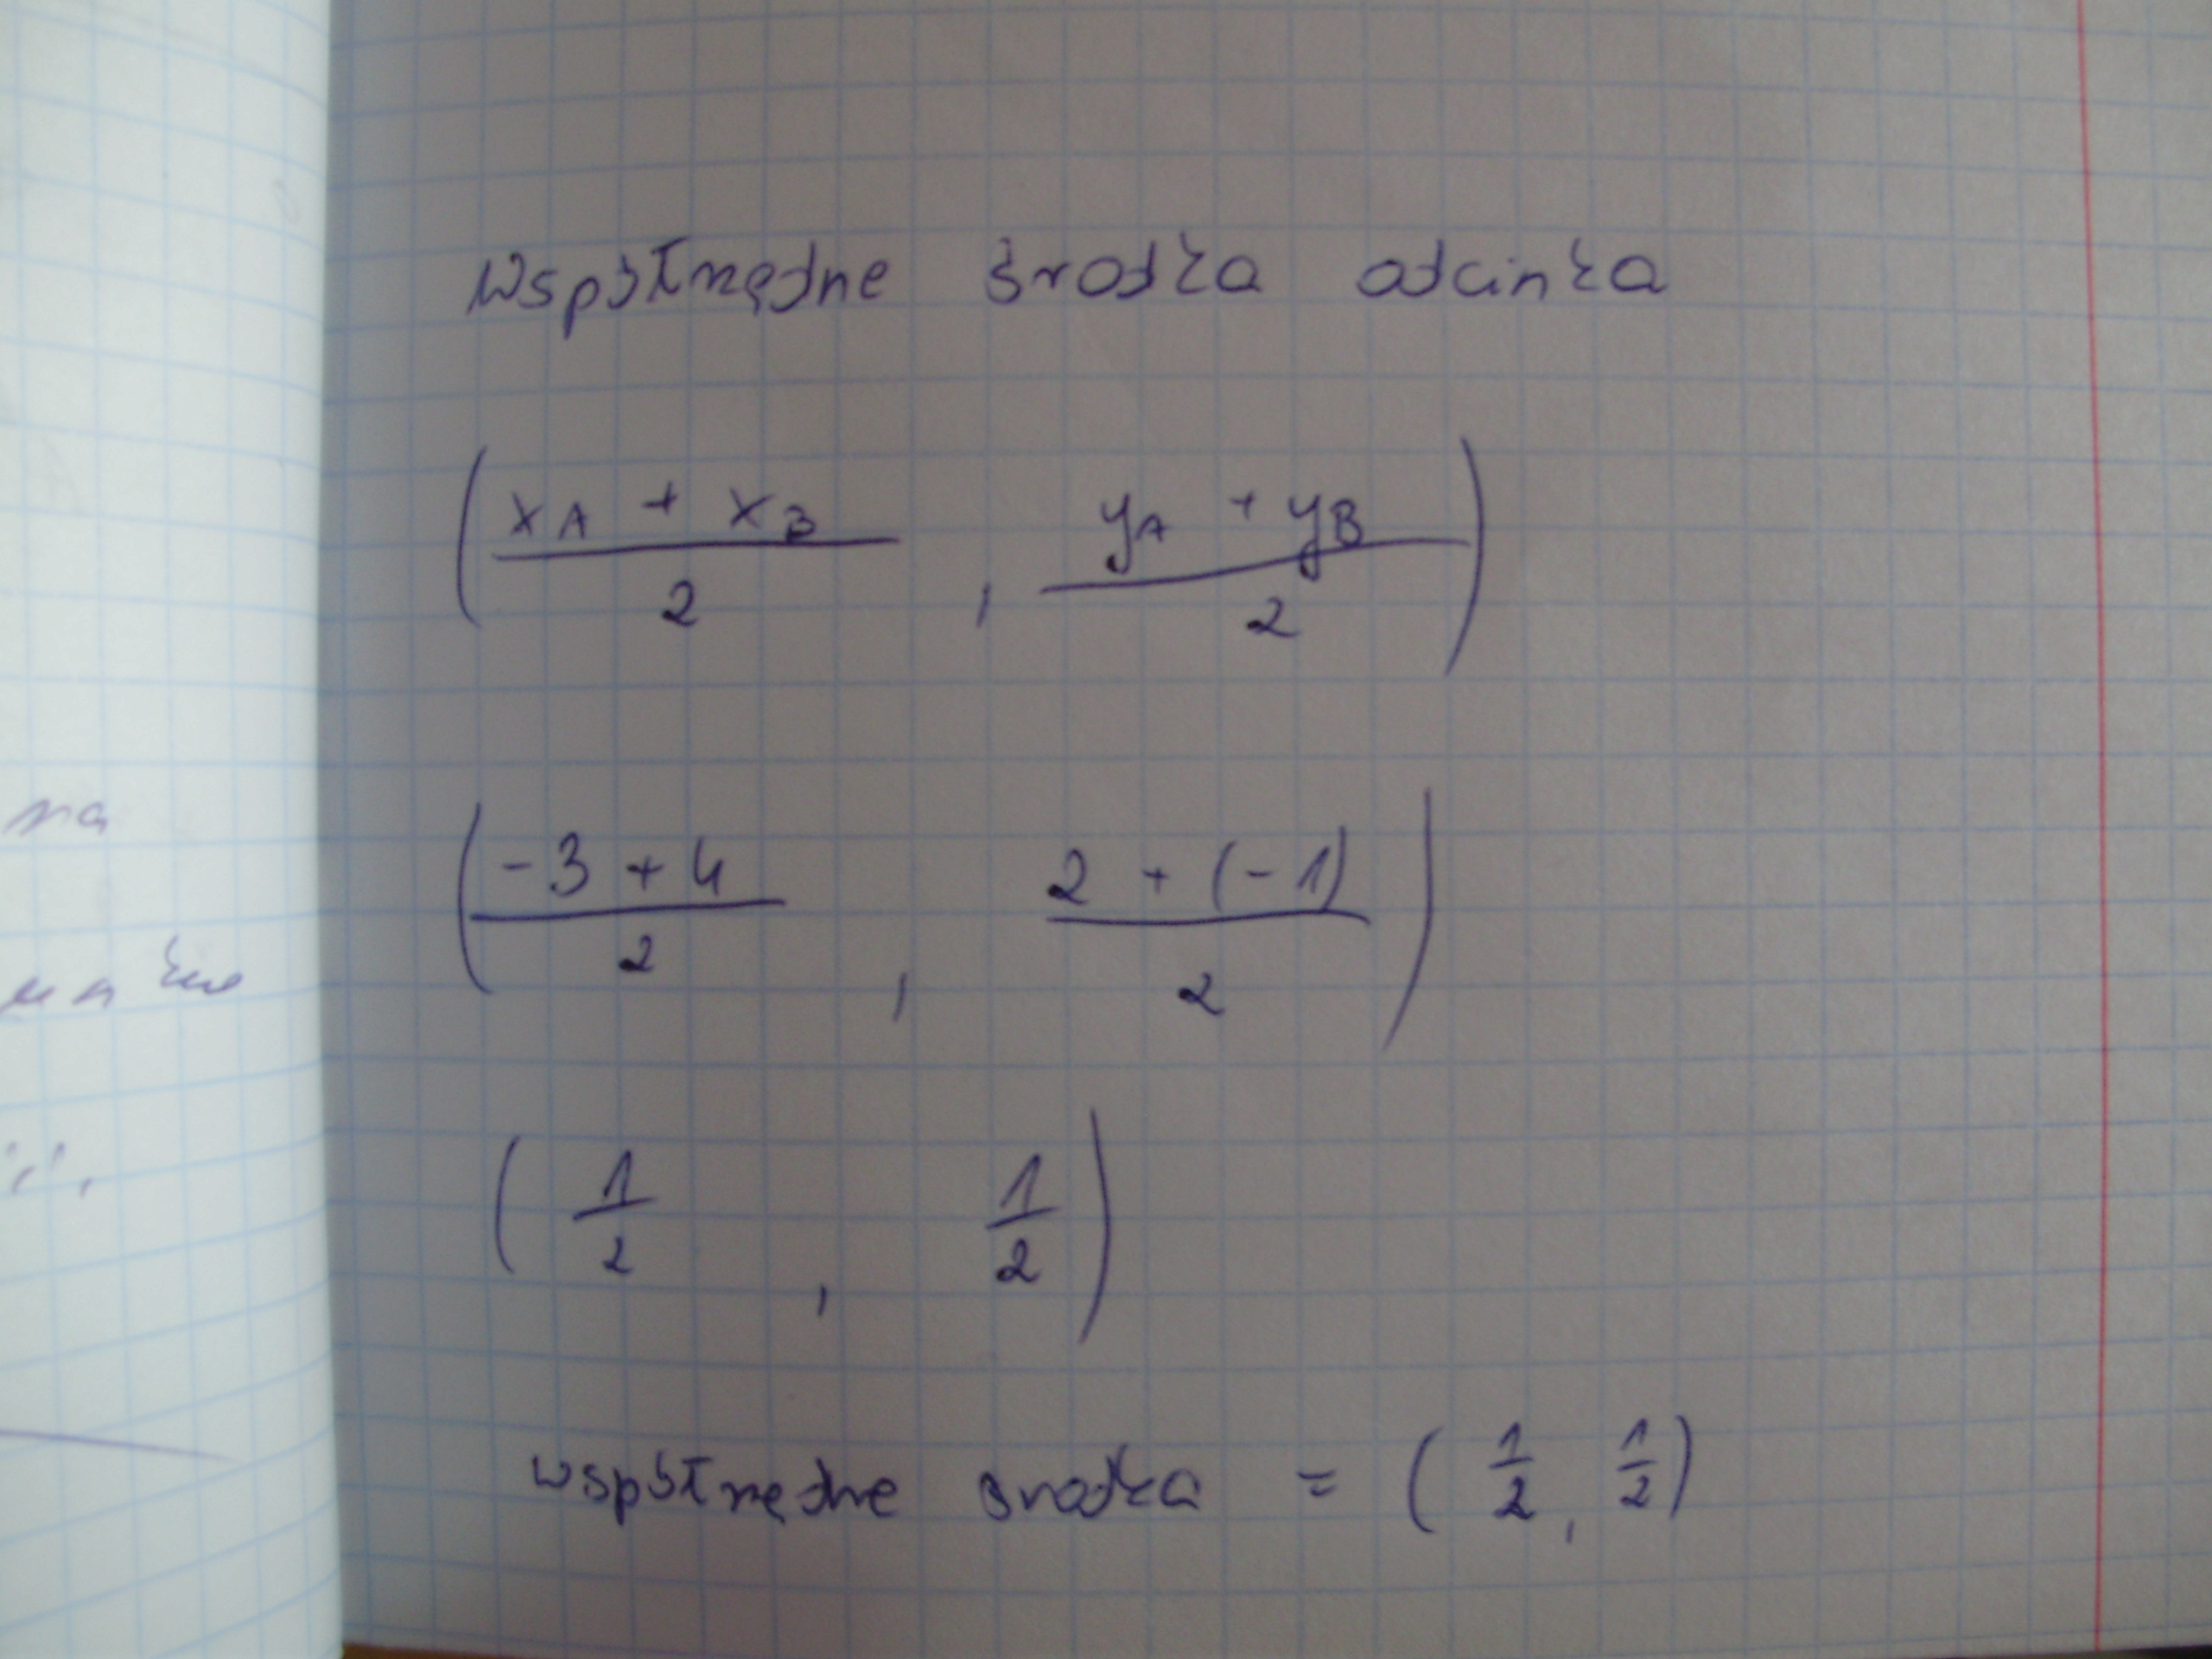 współrzędne środka odcinka
(xA + xB / 2 , yA + yB / 2)
(-3 + 4 / 2 , 2 + (-1) / 2)
(1/2 , 1/2)
współrzędne środka = (1/2 , 1/2)
na